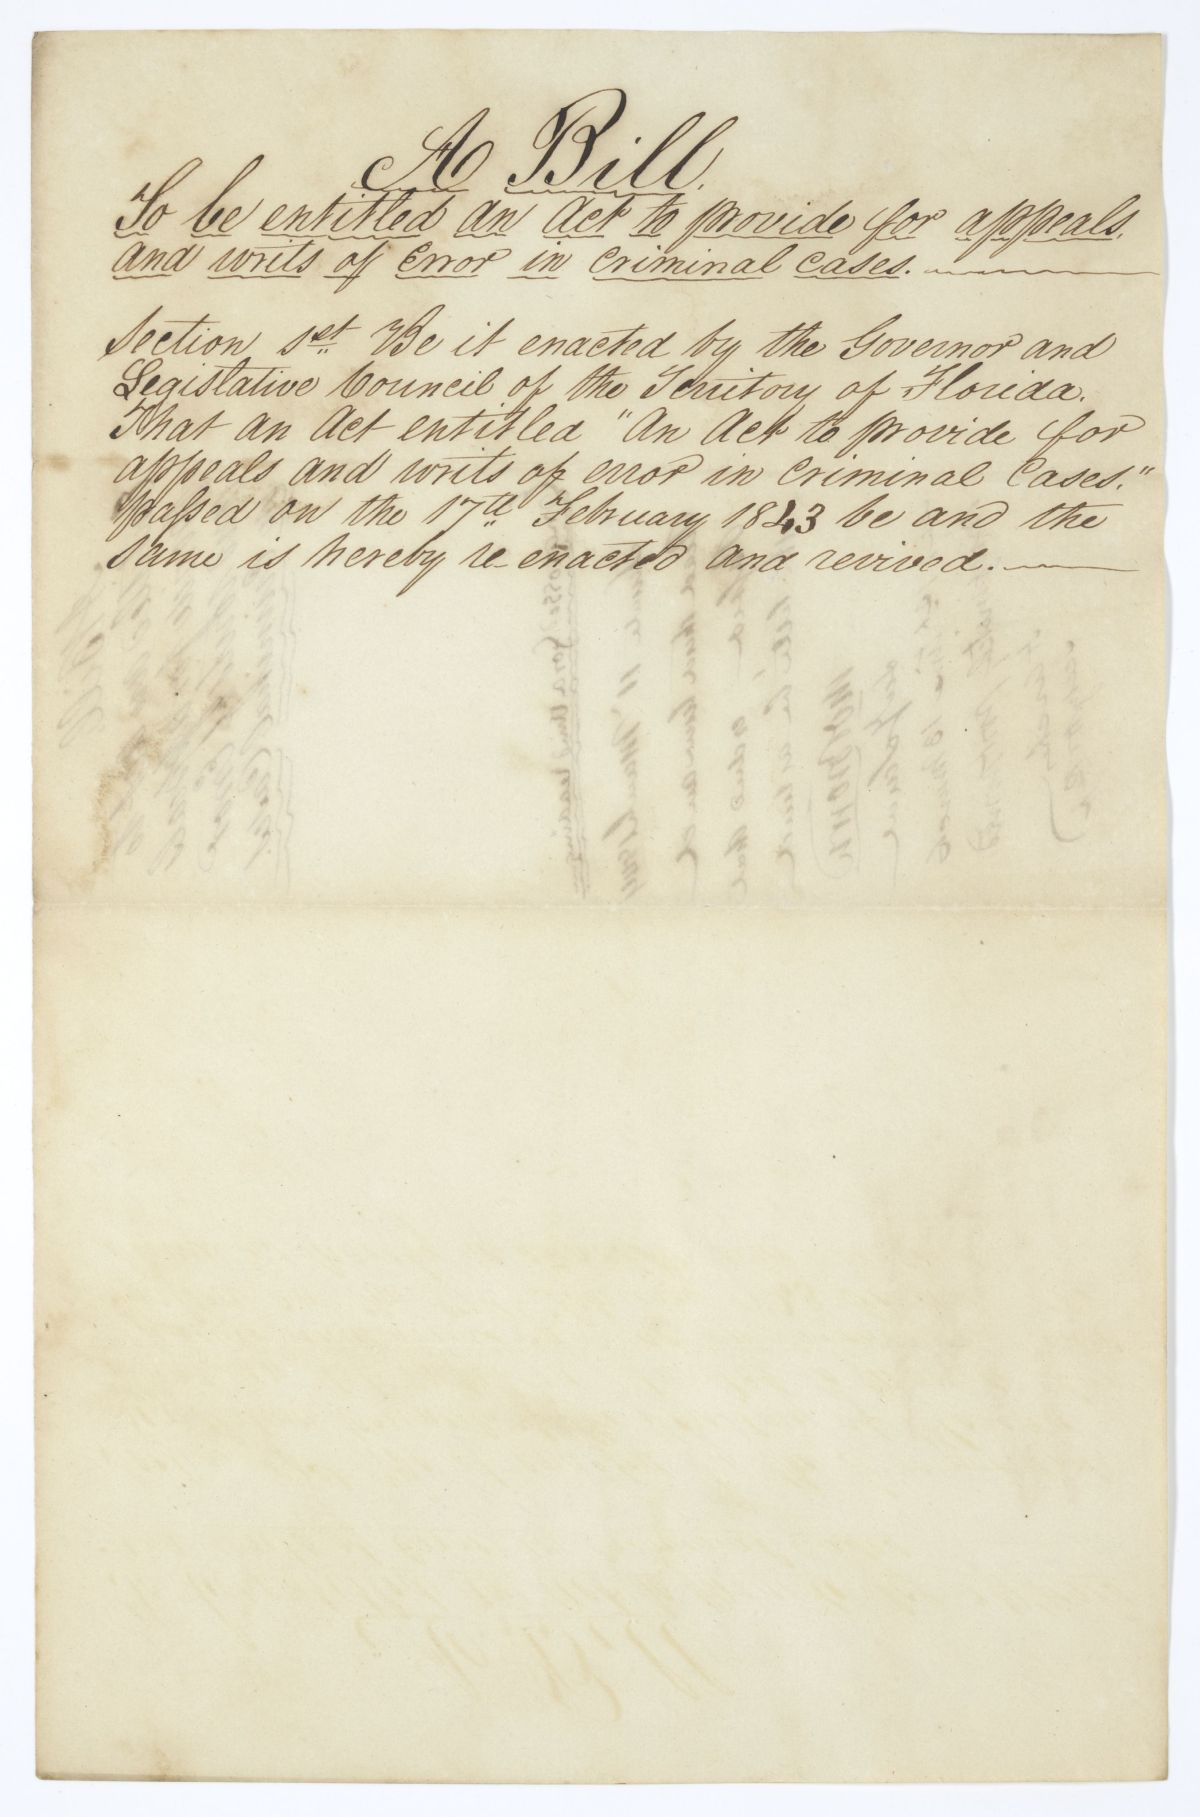 A Bill.
To be entitled an Act to provide for appeals.
and writs of error in criminal cases.
Section 1st Be it enacted by the Governor and
Legislative Council of the Territory of Florida.
That an Act entitled "An Act to provide for
appeals and writs of error in criminal Cases."
passed on the 17th February 1843 be and the
same is hereby re-enacted and revived.